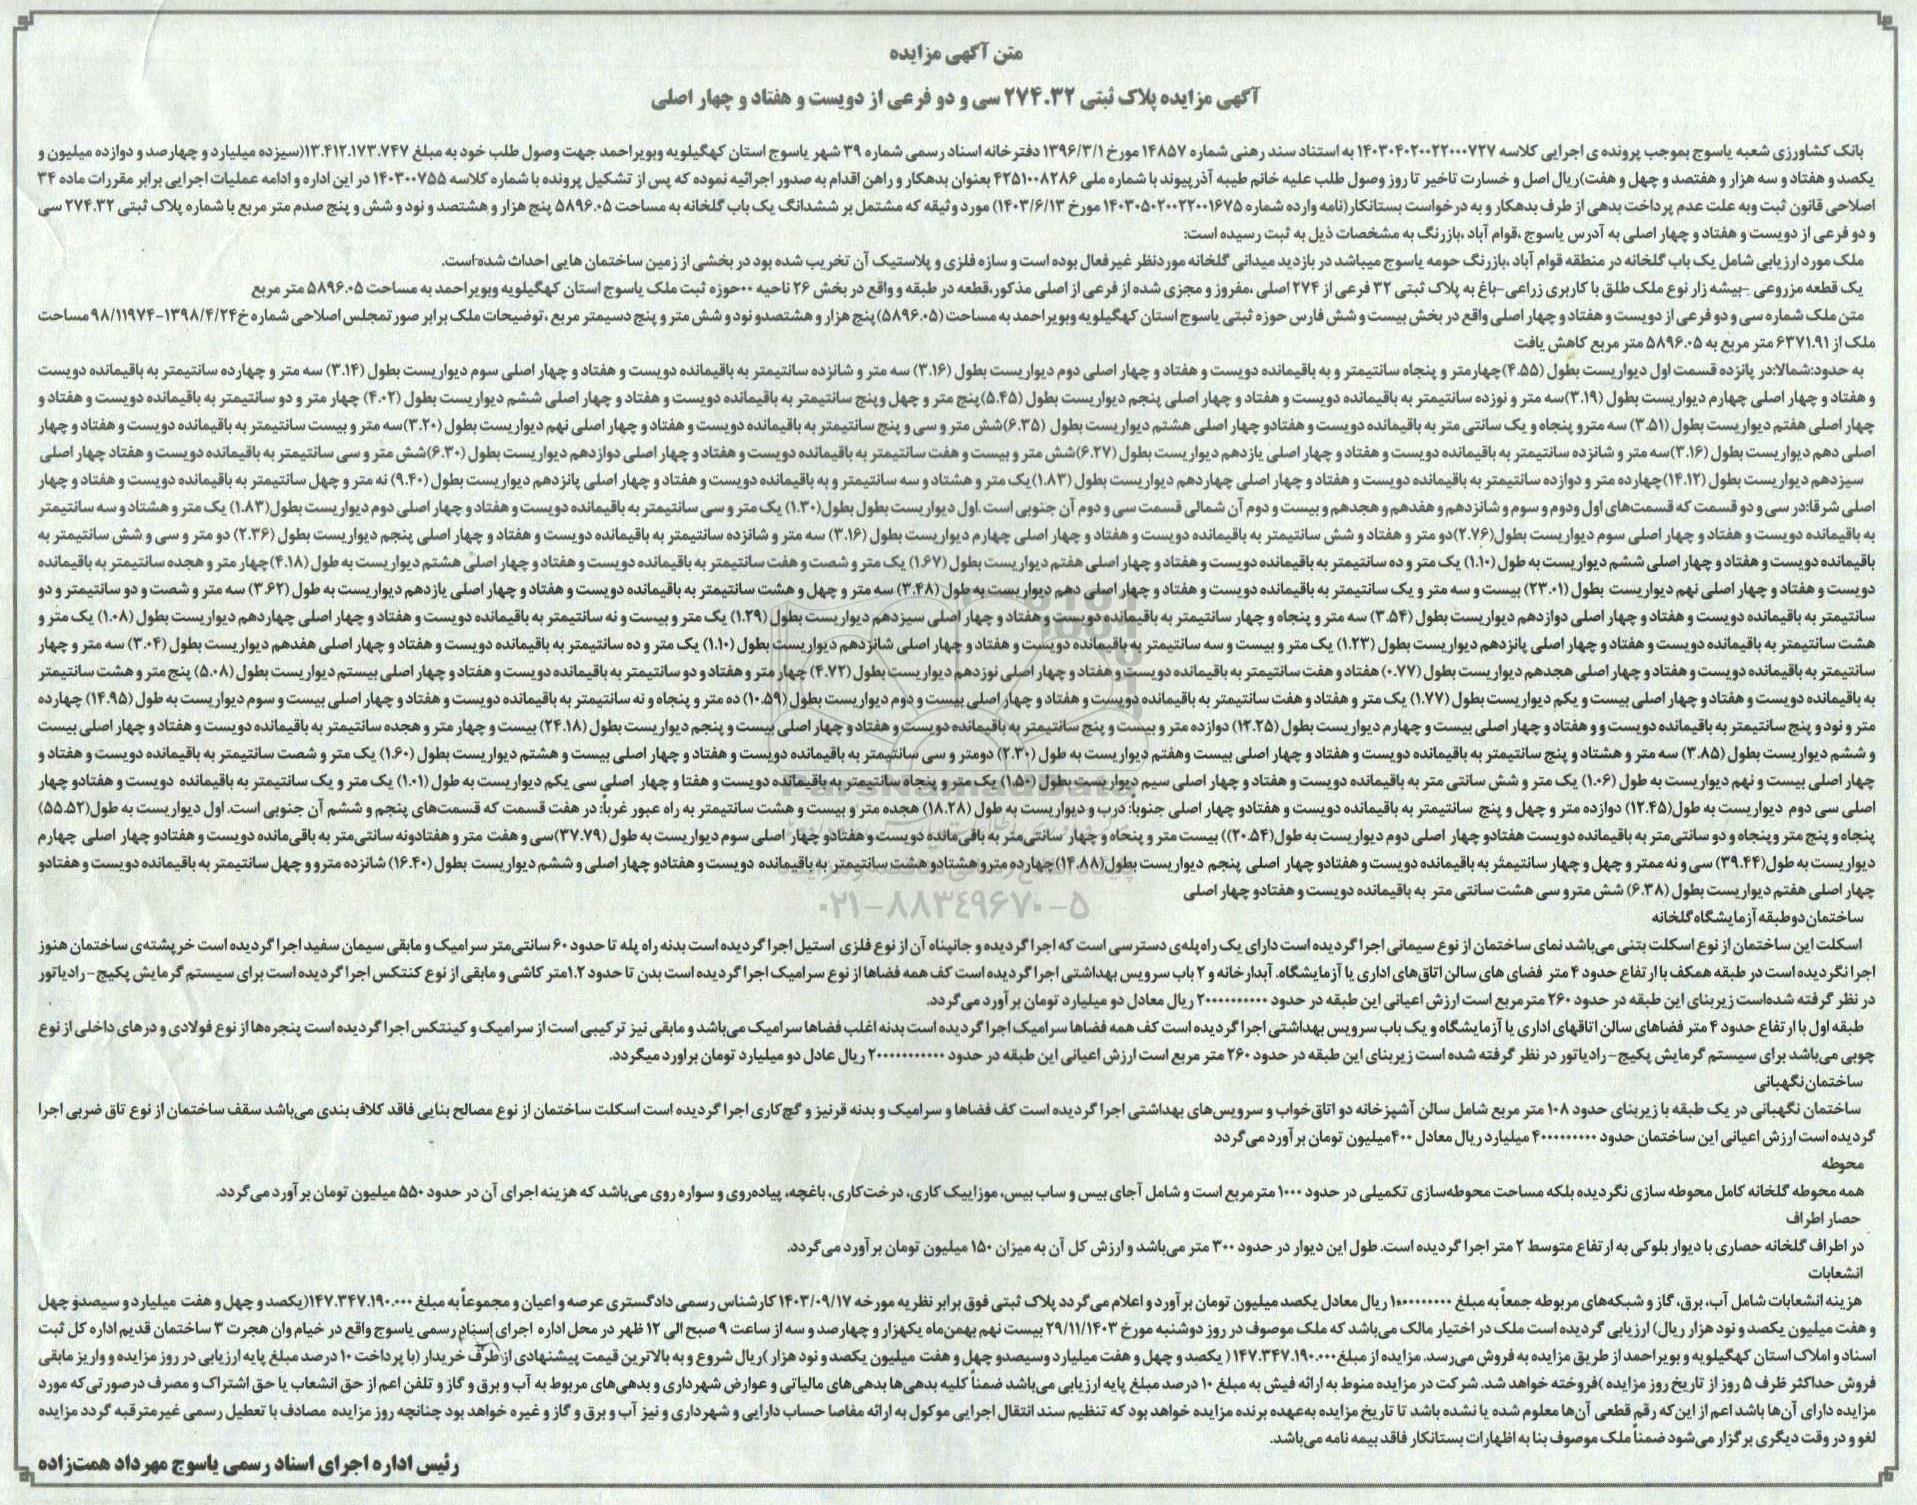 متن آگهی مزایده
آگهی مزایده پلاک ثبتی ۲۷۴.۳۲ سی و دو فرعی از دویست و هفتاد و چهار اصلی
بانک کشاورزی شعبه یاسوج بموجب پرونده ی اجرایی کلاسه ۱۴۰۳۰۴۰۲۰۰۲۲۰۰۰۷۲۷ به استناد سند رهنی شماره ۱۴۸۵۷ مورخ ۱۳۹۶/۳/۱ دفترخانه اسناد رسمی شماره ۳۹ شهر یاسوج استان کهگیلویه وبویراحمد جهت وصول طلب خود به مبلغ ۱۳.۴۱۲.۱۷۳.۷۴۷(سیزده میلیارد و چهارصد و دوازده میلیون و
یکصد و هفتاد و سه هزار و هفتصد و چهل و هفت)ریال اصل و خسارت تاخیر تا روز وصول طلب علیه خانم طیبه آذرپیوند با شماره ملی ۴۲۵۱۰۰۸۲۸۶ بعنوان بدهکار و راهن اقدام به صدور اجرائیه نموده که پس از تشکیل پرونده با شماره کلاسه ۱۴۰۳۰۰۷۵۵ در این اداره و ادامه عملیات اجرایی برابر مقررات ماده ۳۴
اصلاحی قانون ثبت وبه علت عدم پرداخت بدهی از طرف بدهکار و به درخواست بستانکار(نامه وارده شماره ۱۴۰۳۰۵۰۲۰۰۲۲۰۰۱۶۷۵ مورخ ۱۴۰۳/۶/۱۳) مورد وثیقه که مشتمل بر ششدانگ یک باب گلخانه به مساحت ۵۸۹۶.۰۵ پنج هزار و هشتصد و نود و شش و پنج صدم متر مربع با شماره پلاک ثبتی ۲۷۴.۳۲ سی
و دو فرعی از دویست و هفتاد و چهار اصلی به آدرس یاسوج ،قوام آباد ،بازرنگ به مشخصات ذیل به ثبت رسیده است:
ملک مورد ارزیابی شامل یک باب گلخانه در منطقه قوام آباد ،بازرنگ حومه یاسوج میباشد در بازدید میدانی گلخانه موردنظر غیرفعال بوده است و سازه فلزی و پلاستیک آن تخریب شده بود در بخشی از زمین ساختمان هایی احداث شده است.
یک قطعه مزروعی -بیشه زار نوع ملک طلق با کاربری زراعی-باغ به پلاک ثبتی ۳۲ فرعی از ۲۷۴ اصلی ،مفروز و مجزی شده از فرعی از اصلی مذکور،قطعه در طبقه و واقع در بخش ۲۶ ناحیه ۰۰حوزه ثبت ملک یاسوج استان کهگیلویه وبویراحمد به مساحت ۵۸۹۶.۰۵ متر مربع
متن ملک شماره سی و دو فرعی از دویست و هفتاد و چهار اصلی واقع در بخش بیست و شش فارس حوزه ثبتی یاسوج استان کهگیلویه وبویراحمد به مساحت (۵۸۹۶.۰۵) پنج هزار و هشتصدو نود و شش متر و پنج دسیمتر مربع ،توضیحات ملک برابر صورتمجلس اصلاحی شماره خ۱۳۹۸/۴/۲۴-۹۸/۱۱۹۷۴ مساحت
ملک از ۶۳۷۱.۹۱ متر مربع به ۵۸۹۶.۰۵ متر مربع کاهش یافت
به حدود:شمالا:در پانزده قسمت اول دیواریست بطول (۴.۵۵)چهارمتر و پنجاه سانتیمتر و به باقیمانده دویست و هفتاد و چهار اصلی دوم دیواریست بطول (۳.۱۶) سه متر و شانزده سانتیمتر به باقیمانده دویست و هفتاد و چهار اصلی سوم دیواریست بطول (۳.۱۴) سه متر و چهارده سانتیمتر به باقیمانده دویست
و هفتاد و چهار اصلی چهارم دیواریست بطول (۳.۱۹)سه متر و نوزده سانتیمتر به باقیمانده دویست و هفتاد و چهار اصلی پنجم دیواریست بطول (۵.۴۵)پنج متر و چهل وپنج سانتیمتر به باقیمانده دویست و هفتاد و چهار اصلی ششم دیواریست بطول (۴.۰۲) چهار متر و دو سانتیمتر به باقیمانده دویست و هفتاد و
چهار اصلی هفتم دیواریست بطول (۳.۵۱) سه مترو پنجاه و یک سانتی متر به باقیمانده دویست و هفتادو چهار اصلی هشتم دیواریست بطول (۶.۳۵)شش متر و سی و پنج سانتیمتر به باقیمانده دویست و هفتاد و چهار اصلی نهم دیواریست بطول (۳.۲۰)سه متر و بیست سانتیمتر به باقیمانده دویست و هفتاد و چهار
اصلی دهم دیواریست بطول (۳.۱۶)سه متر و شانزده سانتیمتر به باقیمانده دویست و هفتاد و چهار اصلی یازدهم دیواریست بطول (۶.۲۷)شش متر و بیست و هفت سانتیمتر به باقیمانده دویست و هفتاد و چهار اصلی دوازدهم دیواریست بطول (۶.۳۰)شش متر و سی سانتیمتر به باقیمانده دویست و هفتاد چهار اصلی
سیزدهم دیواریست بطول (۱۴.۱۲)چهارده متر و دوازده سانتیمتر به باقیمانده دویست و هفتاد و چهار اصلی چهاردهم دیواریست بطول (۱.۸۳)یک متر و هشتاد و سه سانتیمتر و به باقیمانده دویست و هفتاد و چهار اصلی پانزدهم دیواریست بطول (۹.۴۰) نه متر و چهل سانتیمتر به باقیمانده دویست و هفتاد و چهار
اصلی شرقا:در سی و دو قسمت که قسمت‌های اول ودوم و سوم و شانزدهم و هفدهم و هجدهم و بیست و دوم آن شمالی قسمت سی و دوم آن جنوبی است .اول دیواریست بطول بطول(۱.۳۰) یک متر و سی سانتیمتر به باقیمانده دویست و هفتاد و چهار اصلی دوم دیواریست بطول(۱.۸۳) یک متر و هشتاد و سه سانتیمتر
به باقیمانده دویست و هفتاد و چهار اصلی سوم دیواریست بطول(۲.۷۶)دو متر و هفتاد و شش سانتیمتر به باقیمانده دویست و هفتاد و چهار اصلی چهارم دیواریست بطول (۳.۱۶) سه متر و شانزده سانتیمتر به باقیمانده دویست و هفتاد و چهار اصلی پنجم دیواریست بطول (۲.۳۶) دو متر و سی و شش سانتیمتر به
باقیمانده دویست و هفتاد و چهار اصلی ششم دیواریست به طول (۱.۱۰) یک متر و ده سانتیمتر به باقیمانده دویست و هفتاد و چهار اصلی هفتم دیواریست بطول (۱.۶۷) یک متر و شصت و هفت سانتیمتر به باقیمانده دویست و هفتاد و چهار اصلی هشتم دیواریست به طول (۴.۱۸)چهار متر و هجده سانتیمتر به باقیمانده
دویست و هفتاد و چهار اصلی نهم دیواریست بطول (۲۳.۰۱) بیست و سه متر و یک سانتیمتر به باقیمانده دویست و هفتاد و چهار اصلی دهم دیواریست به طول (۳.۴۸) سه متر و چهل و هشت سانتیمتر به باقیمانده دویست و هفتاد و چهار اصلی یازدهم دیواریست به طول (۳.۶۲) سه متر و شصت و دو سانتیمتر و دو
سانتیمتر به باقیمانده دویست و هفتاد و چهار اصلی دوازدهم دیواریست بطول (۳.۵۴) سه متر و پنجاه و چهار سانتیمتر به باقیمانده دویست و هفتاد و چهار اصلی سیزدهم دیواریست بطول (۱.۲۹) یک متر و بیست و نه سانتیمتر به باقیمانده دویست و هفتاد و چهار اصلی چهاردهم دیواریست بطول (۱.۰۸) یک متر و
هشت سانتیمتر به باقیمانده دویست و هفتاد و چهار اصلی پانزدهم دیواریست بطول (۱.۲۳) یک متر و بیست و سه سانتیمتر به باقیمانده دویست و هفتاد و چهار اصلی شانزدهم دیواریست بطول (۱.۱۰) یک متر و ده سانتیمتر به باقیمانده دویست و هفتاد و چهار اصلی هفدهم دیواریست بطول (۳.۰۴) سه متر و چهار
سانتیمتر به باقیمانده دویست و هفتاد و چهار اصلی هجدهم دیواریست بطول (۰.۷۷) هفتاد و هفت سانتیمتر به باقیمانده دویست و هفتاد و چهار اصلی نوزدهم دیواریست بطول (۴.۷۲) چهار متر و هفتاد و دو سانتیمتر به باقیمانده دویست و هفتاد و چهار اصلی بیستم دیواریست بطول (۵.۰۸) پنج متر و هشت سانتیمتر
به باقیمانده دویست و هفتاد و چهار اصلی بیست و یکم دیواریست بطول (۱.۷۷) یک متر و هفتاد و هفت سانتیمتر به باقیمانده دویست و هفتاد و چهار اصلی بیست و دوم دیواریست بطول (۱۰.۵۹) ده متر و پنجاه و نه سانتیمتر به باقیمانده دویست و هفتاد و چهار اصلی بیست و سوم دیواریست به طول (۱۴.۹۵) چهارده
متر و نود و پنج سانتیمتر به باقیمانده دویست و و هفتاد و چهار اصلی بیست و چهارم دیواریست بطول (۱۲.۲۵) دوازده متر و بیست و پنج سانتیمتر به باقیمانده دویست و هفتاد و چهار اصلی بیست و پنجم دیواریست بطول (۲۴.۱۸) بیست و چهار متر و هجده سانتیمتر به باقیمانده دویست و هفتاد و چهار اصلی بیست
و ششم دیواریست بطول (۳.۸۵) سه متر و هشتاد و پنج سانتیمتر به باقیمانده دویست و هفتاد و چهار اصلی بیست وهفتم دیواریست به طول (۲.۳۰) دومتر و سی سانتیمتر به باقیمانده دویست و هفتاد و چهار اصلی بیست و هشتم دیواریست بطول (۱.۶۰) یک متر و شصت سانتیمتر به باقیمانده دویست و هفتاد و
چهار اصلی بیست و نهم دیواریست به طول (۱.۰۶) یک متر و شش سانتی متر به باقیمانده دویست و هفتاد و چهار اصلی سیم دیواریست بطول (۱.۵۰) یک متر و پنجاه سانتیمتر به باقیمانده دویست و هفتا و چهار اصلی سی یکم دیواریست به طول (۱.۰۱) یک متر و یک سانتیمتر به باقیمانده دویست و هفتادو چهار
اصلی سی دوم دیواریست به طول(۱۲.۴۵) دوازده متر و چهل و پنج سانتیمتر به باقیمانده دویست و هفتادو چهار اصلی جنوبا: درب و دیواریست به طول (۱۸.۲۸) هجده متر و بیست و هشت سانتیمتر به راه عبور غرباً: در هفت قسمت که قسمت‌های پنجم و ششم آن جنوبی است. اول دیواریست به طول(۵۵.۵۲)
پنجاه و پنج متر وپنجاه و دو سانتی‌متر به باقیمانده دویست هفتادو چهار اصلی دوم دیواریست به طول(۲۰.۵۴)) بیست متر و پنجاه و چهار سانتی‌متر به باقی‌مانده دویست و هفتادو چهار اصلی سوم دیواریست به طول (۳۷.۷۹)سی و هفت متر و هفتادونه سانتی‌متر به باقی‌مانده دویست و هفتادو چهار اصلی چهارم
دیواریست به طول(۳۹.۴۴) سی و نه ممتر و چهل و چهار سانتیمتر به باقیمانده دویست و هفتادو چهار اصلی پنجم دیواریست بطول(۱۴.۸۸)چهارده مترو هشتادو هشت سانتیمتر به باقیمانده دویست و هفتادو چهار اصلی و ششم دیواریست بطول (۱۶.۴۰) شانزده مترو و چهل سانتیمتر به باقیمانده دویست و هفتادو
چهار اصلی هفتم دیواریست بطول (۶.۳۸) شش مترو سی هشت سانتی متر به باقیمانده دویست و هفتادو چهار اصلی
ساختمان دو طبقه آزمایشگاه گلخانه
اسکلت این ساختمان از نوع اسکلت بتنی می‌باشد نمای ساختمان از نوع سیمانی اجرا گردیده است دارای یک راه‌پله‌ی دسترسی است که اجرا گردیده و جانپناه آن از نوع فلزی استیل اجرا گردیده است بدنه راه پله تا حدود ۶۰ سانتی‌متر سرامیک و مابقی سیمان سفید اجرا گردیده است خرپشته‌ی ساختمان هنوز
اجرا نگردیده است در طبقه همکف با ارتفاع حدود ۴ متر فضای های سالن اتاق‌های اداری یا آزمایشگاه. آبدارخانه و ۲ باب سرویس بهداشتی اجرا گردیده است کف همه فضاها از نوع سرامیک اجرا گردیده است بدن تا حدود ۱.۲متر کاشی و مابقی از نوع کنتکس اجرا گردیده است برای سیستم گرمایش پکیج-رادیاتور
در نظر گرفته شده‌است زیربنای این طبقه در حدود ۲۶۰ مترمربع است ارزش اعیانی این طبقه در حدود ۲۰۰۰۰۰۰۰۰۰۰ ریال معادل دو میلیارد تومان برآورد می‌گردد.
طبقه اول با ارتفاع حدود ۴ متر فضاهای سالن اتاقهای اداری یا آزمایشگاه و یک باب سرویس بهداشتی اجرا گردیده است کف همه فضاها سرامیک اجرا گردیده است بدنه اغلب فضاها سرامیک می‌باشد و مابقی نیز ترکیبی است از سرامیک و کینتکس اجرا گردیده است پنجره‌ها از نوع فولادی و درهای داخلی از نوع
چوبی می‌باشد برای سیستم گرمایش پکیج- رادیاتور در نظر گرفته شده است زیربنای این طبقه در حدود ۲۶۰ متر مربع است ارزش اعیانی این طبقه در حدود ۲۰۰۰۰۰۰۰۰۰۰ ریال عادل دو میلیارد تومان براورد میگردد.
ساختمان نگهبانی
ساختمان نگهبانی در یک طبقه با زیربنای حدود ۱۰۸ متر مربع شامل سالن آشپزخانه دو اتاق‌خواب و سرویس‌های بهداشتی اجرا گردیده است کف فضاها و سرامیک و بدنه قرنیز و گچ‌کاری اجرا گردیده است اسکلت ساختمان از نوع مصالح بنایی فاقد کلاف بندی می‌باشد سقف ساختمان از نوع تاق ضربی اجرا
گردیده است ارزش اعیانی این ساختمان حدود ۴۰۰۰۰۰۰۰۰۰ میلیارد ریال معادل ۴۰۰میلیون تومان برآورد می‌گردد
محوطه
همه محوطه گلخانه کامل محوطه سازی نگردیده بلکه مساحت محوطه‌سازی تکمیلی در حدود ۱۰۰۰ مترمربع است و شامل آجای بیس و ساب بیس، موزاییک کاری، درخت‌کاری، باغچه، پیاده‌روی و سواره روی می‌باشد که هزینه اجرای آن در حدود ۵۵۰ میلیون تومان برآورد می‌گردد.
حصار اطراف
در اطراف گلخانه حصاری با دیوار بلوکی به ارتفاع متوسط ۲ متر اجرا گردیده است. طول این دیوار در حدود ۳۰۰ متر می‌باشد و ارزش کل آن به میزان ۱۵۰ میلیون تومان برآورد می‌گردد.
انشعابات
هزینه انشعابات شامل آب، برق، گاز و شبکه‌های مربوطه جمعاً به مبلغ ۱۰۰۰۰۰۰۰۰۰ ریال معادل یکصد میلیون تومان برآورد و اعلام می‌گردد پلاک ثبتی فوق برابر نظریه مورخه ۱۴۰۳/۰۹/۱۷ کارشناس رسمی دادگستری عرصه و اعیان و مجموعاً به مبلغ ۱۴۷.۳۴۷.۱۹۰.۰۰۰(یکصد و چهل و هفت میلیارد و سیصدو چهل
و هفت میلیون یکصد و نود هزار ریال) ارزیابی گردیده است ملک در اختیار مالک می‌باشد که ملک موصوف در روز دوشنبه مورخ ۲۹/۱۱/۱۴۰۳ بیست نهم بهمن‌ماه یکهزار و چهارصد و سه از ساعت ۹ صبح الی ۱۲ ظهر در محل اداره اجرای اسناد رسمی یاسوج واقع در خیام وان هجرت ۳ ساختمان قدیم اداره کل ثبت
اسناد و املاک استان کهگیلویه و بویراحمد از طریق مزایده به فروش می‌رسد. مزایده از مبلغ۱۴۷.۳۴۷.۱۹۰.۰۰۰ ( یکصد و چهل و هفت میلیارد وسیصدو چهل و هفت میلیون یکصد و نود هزار )ریال شروع و به بالاترین قیمت پیشنهادی از طرف خریدار (با پرداخت ۱۰ درصد مبلغ پایه ارزیابی در روز مزایده و واریز مابقی
فروش حداکثر ظرف ۵ روز از تاریخ روز مزایده )فروخته خواهد شد. شرکت در مزایده منوط به ارائه فیش به مبلغ ۱۰ درصد مبلغ پایه ارزیابی می‌باشد ضمناً کلیه بدهی‌ها بدهی‌های مالیاتی و عوارض شهرداری و بدهی‌های مربوط به آب و برق و گاز و تلفن اعم از حق انشعاب یا حق اشتراک و مصرف درصورتی‌که مورد
مزایده دارای آن‌ها باشد اعم از این‌که رقم قطعی آن‌ها معلوم شده یا نشده باشد تا تاریخ مزایده به‌عهده برنده مزایده خواهد بود که تنظیم سند انتقال اجرایی موکول به ارائه مفاصا حساب دارایی و شهرداری و نیز آب و برق و گاز و غیره خواهد بود چنانچه روز مزایده مصادف با تعطیل رسمی غیرمترقبه گردد مزایده
لغو و در وقت دیگری برگزار می‌شود ضمناً ملک موصوف بنا به اظهارات بستانکار فاقد بیمه نامه می‌باشد.
رئیس اداره اجرای اسناد رسمی یاسوج مهرداد همت‌زاده
۰۲۱-۸۸۳۴۹۶۷۰-۵